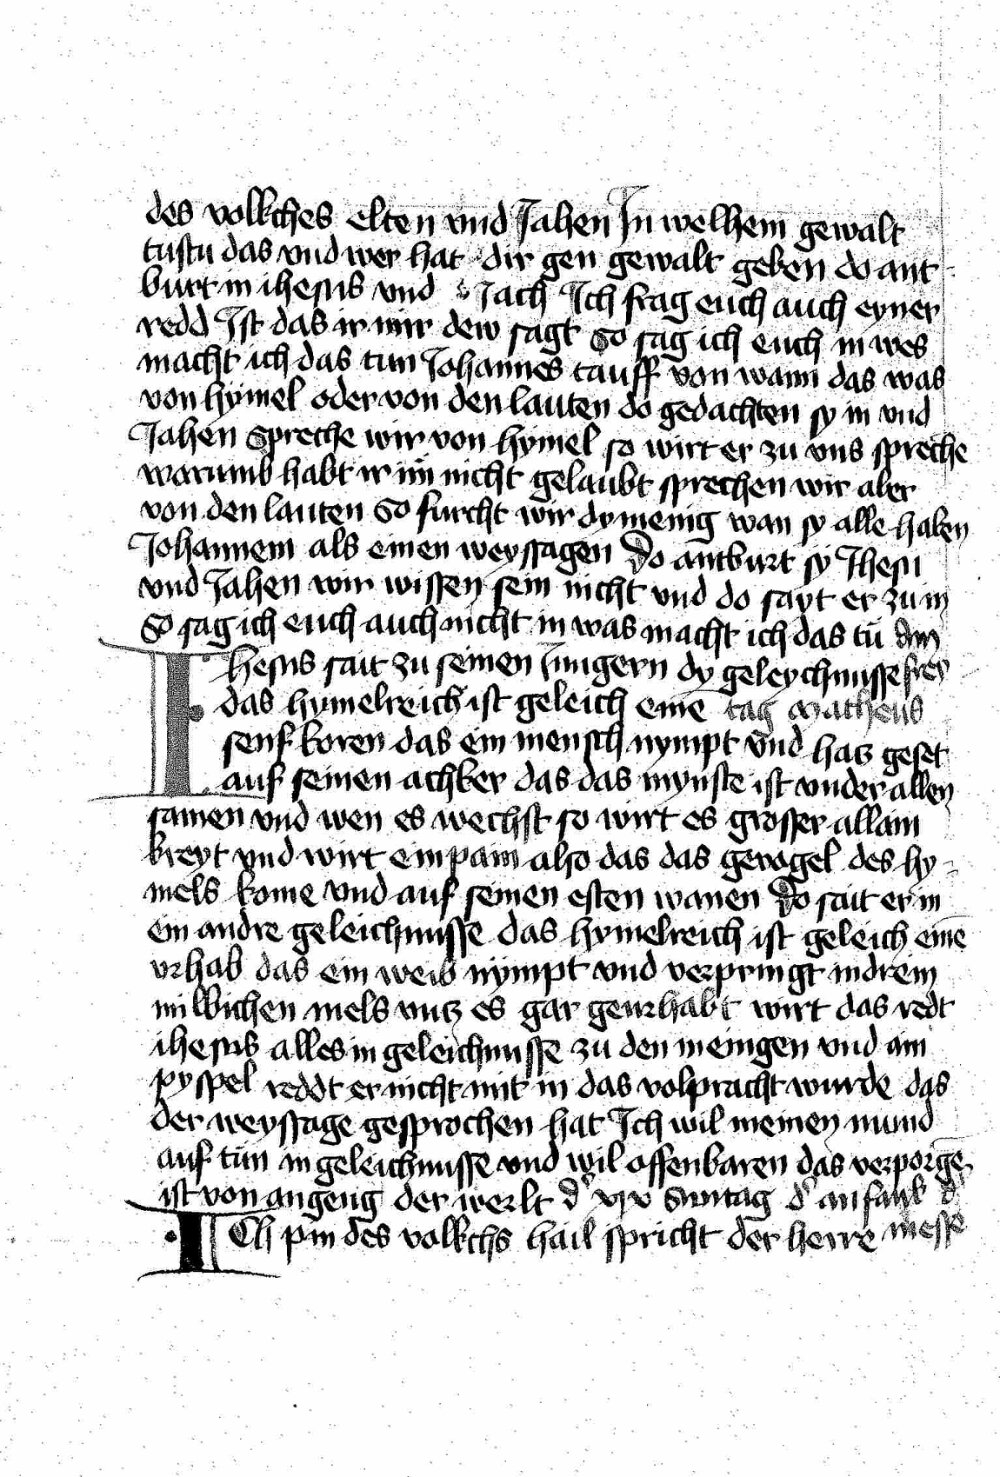 des volkches elten vnd Jahen In welhem gewalt
tustu das vnd wer hat dir gen gewalt geben do ant
burt in ihesus vnd Jach Ich frag euch auch eyner
redd Ist das ir mir dew sagt So sag ich euch in wes
macht ich das tun Johannes tauff von wann das was
von hymel oder von den lauten do gedachten sy in vnd
Jahen Spreche wir von hymel so wirt er zu vns spreche
warumb habt ir im nicht gelaubt sprechen wir aber
von den lauten So furcht wir dy menig wan sy alle haben
Johannem als einen weyssagen Do antburt sy Jhesu
vnd Jahen wir wissen sein nicht vnd do sayt er zu in
So sag ich euch auch nicht in was macht ich das tu am
Ihesus sait zu seinen Jungern dy geleychnusse frey
das hymelreich ist geleich eine tag Matheus
senf koren das ein mensch nympt vnd hatz geset
auf seinen achker das das mynste ist vnder allen
samen vnd wen es wechst so wirt es grosser allain
kreyt vnd wirt ein pam also das das gevogel des hy
mels kome vnd auf seinen esten wanen Do sait er in
ein andre geleichnusse das hymelreich ist geleich eine
vrhab das ein weib nympt vnd verpringt in drein
millichen mels vntz es gar geurhabt wirt das redt
ihesus alles in geleichnusse zu den meingen vnd ain
pyspel reddt er nicht mit in das volpracht wurde das
der weyssage gesprochen hat Ich wil meinen mund
auf tun in geleichnusse vnd wil offenbaren das verporge
ist von angeng der werlt d xix Suntag d anfank d
Ich pin des volkchs hail spricht der herre messe